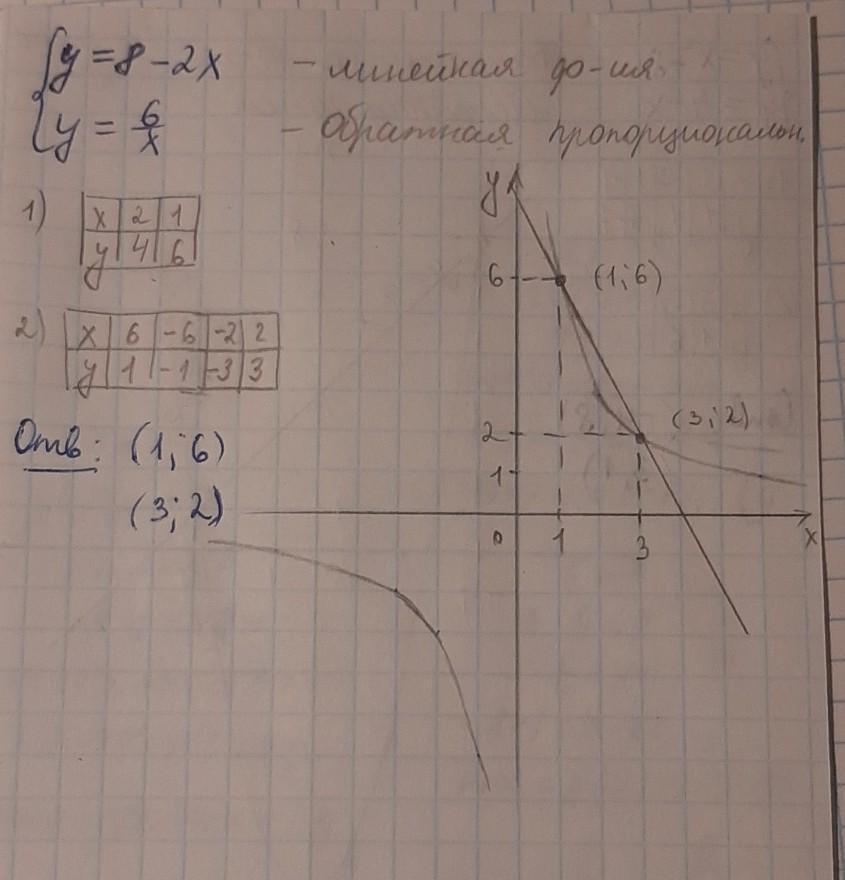 y = 8 - 2x - линейная ф-ция
y = 6/x - Обратная пропорциональн.
1) x 2 1
y 4 6
2) x 6 -6 -2 2
y 1 -1 -3 3
Отв: (1; 6)
(3; 2)
y
6 (1; 6)
2 (3; 2)
1
0 1 3 x